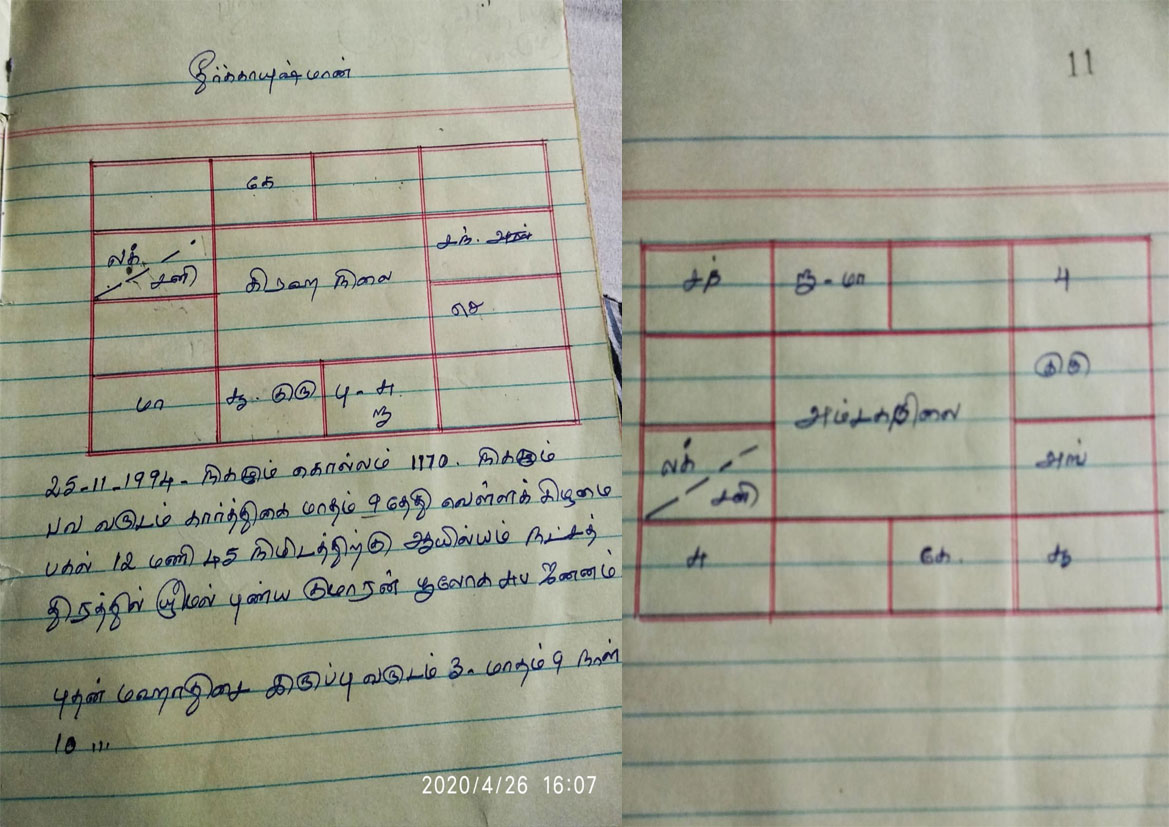 தீர்க்காயுஷ்மான்
கே
லக்
சனி
கிரஹ நிலை
சந். அஸ்
செ
மா
சூ. குரு
பு - சு
ரா
25-11-1994 - நிகழும் கொல்லம் 1170. நிகழும்
பவ வருடம் கார்த்திகை மாதம் 9 தேதி வெள்ளக் கிழமை
பகல் 12 மணி 45 நிமிடத்திற்கு ஆயில்யம் நட்சத்
திரத்தில் ஸ்ரீமல் புண்ய குமாரன் பூலோக சுப ஜனனம்
புதன் மஹாதிசை இருப்பு வருடம் 3 - மாதம் 9 நாள்
10 ...
2020/4/26 16:07
11
சந்
ரா - மா
பு
குரு
அம்சகநிலை
லக்
சனி
அஸ்
சு
கே.
சூ